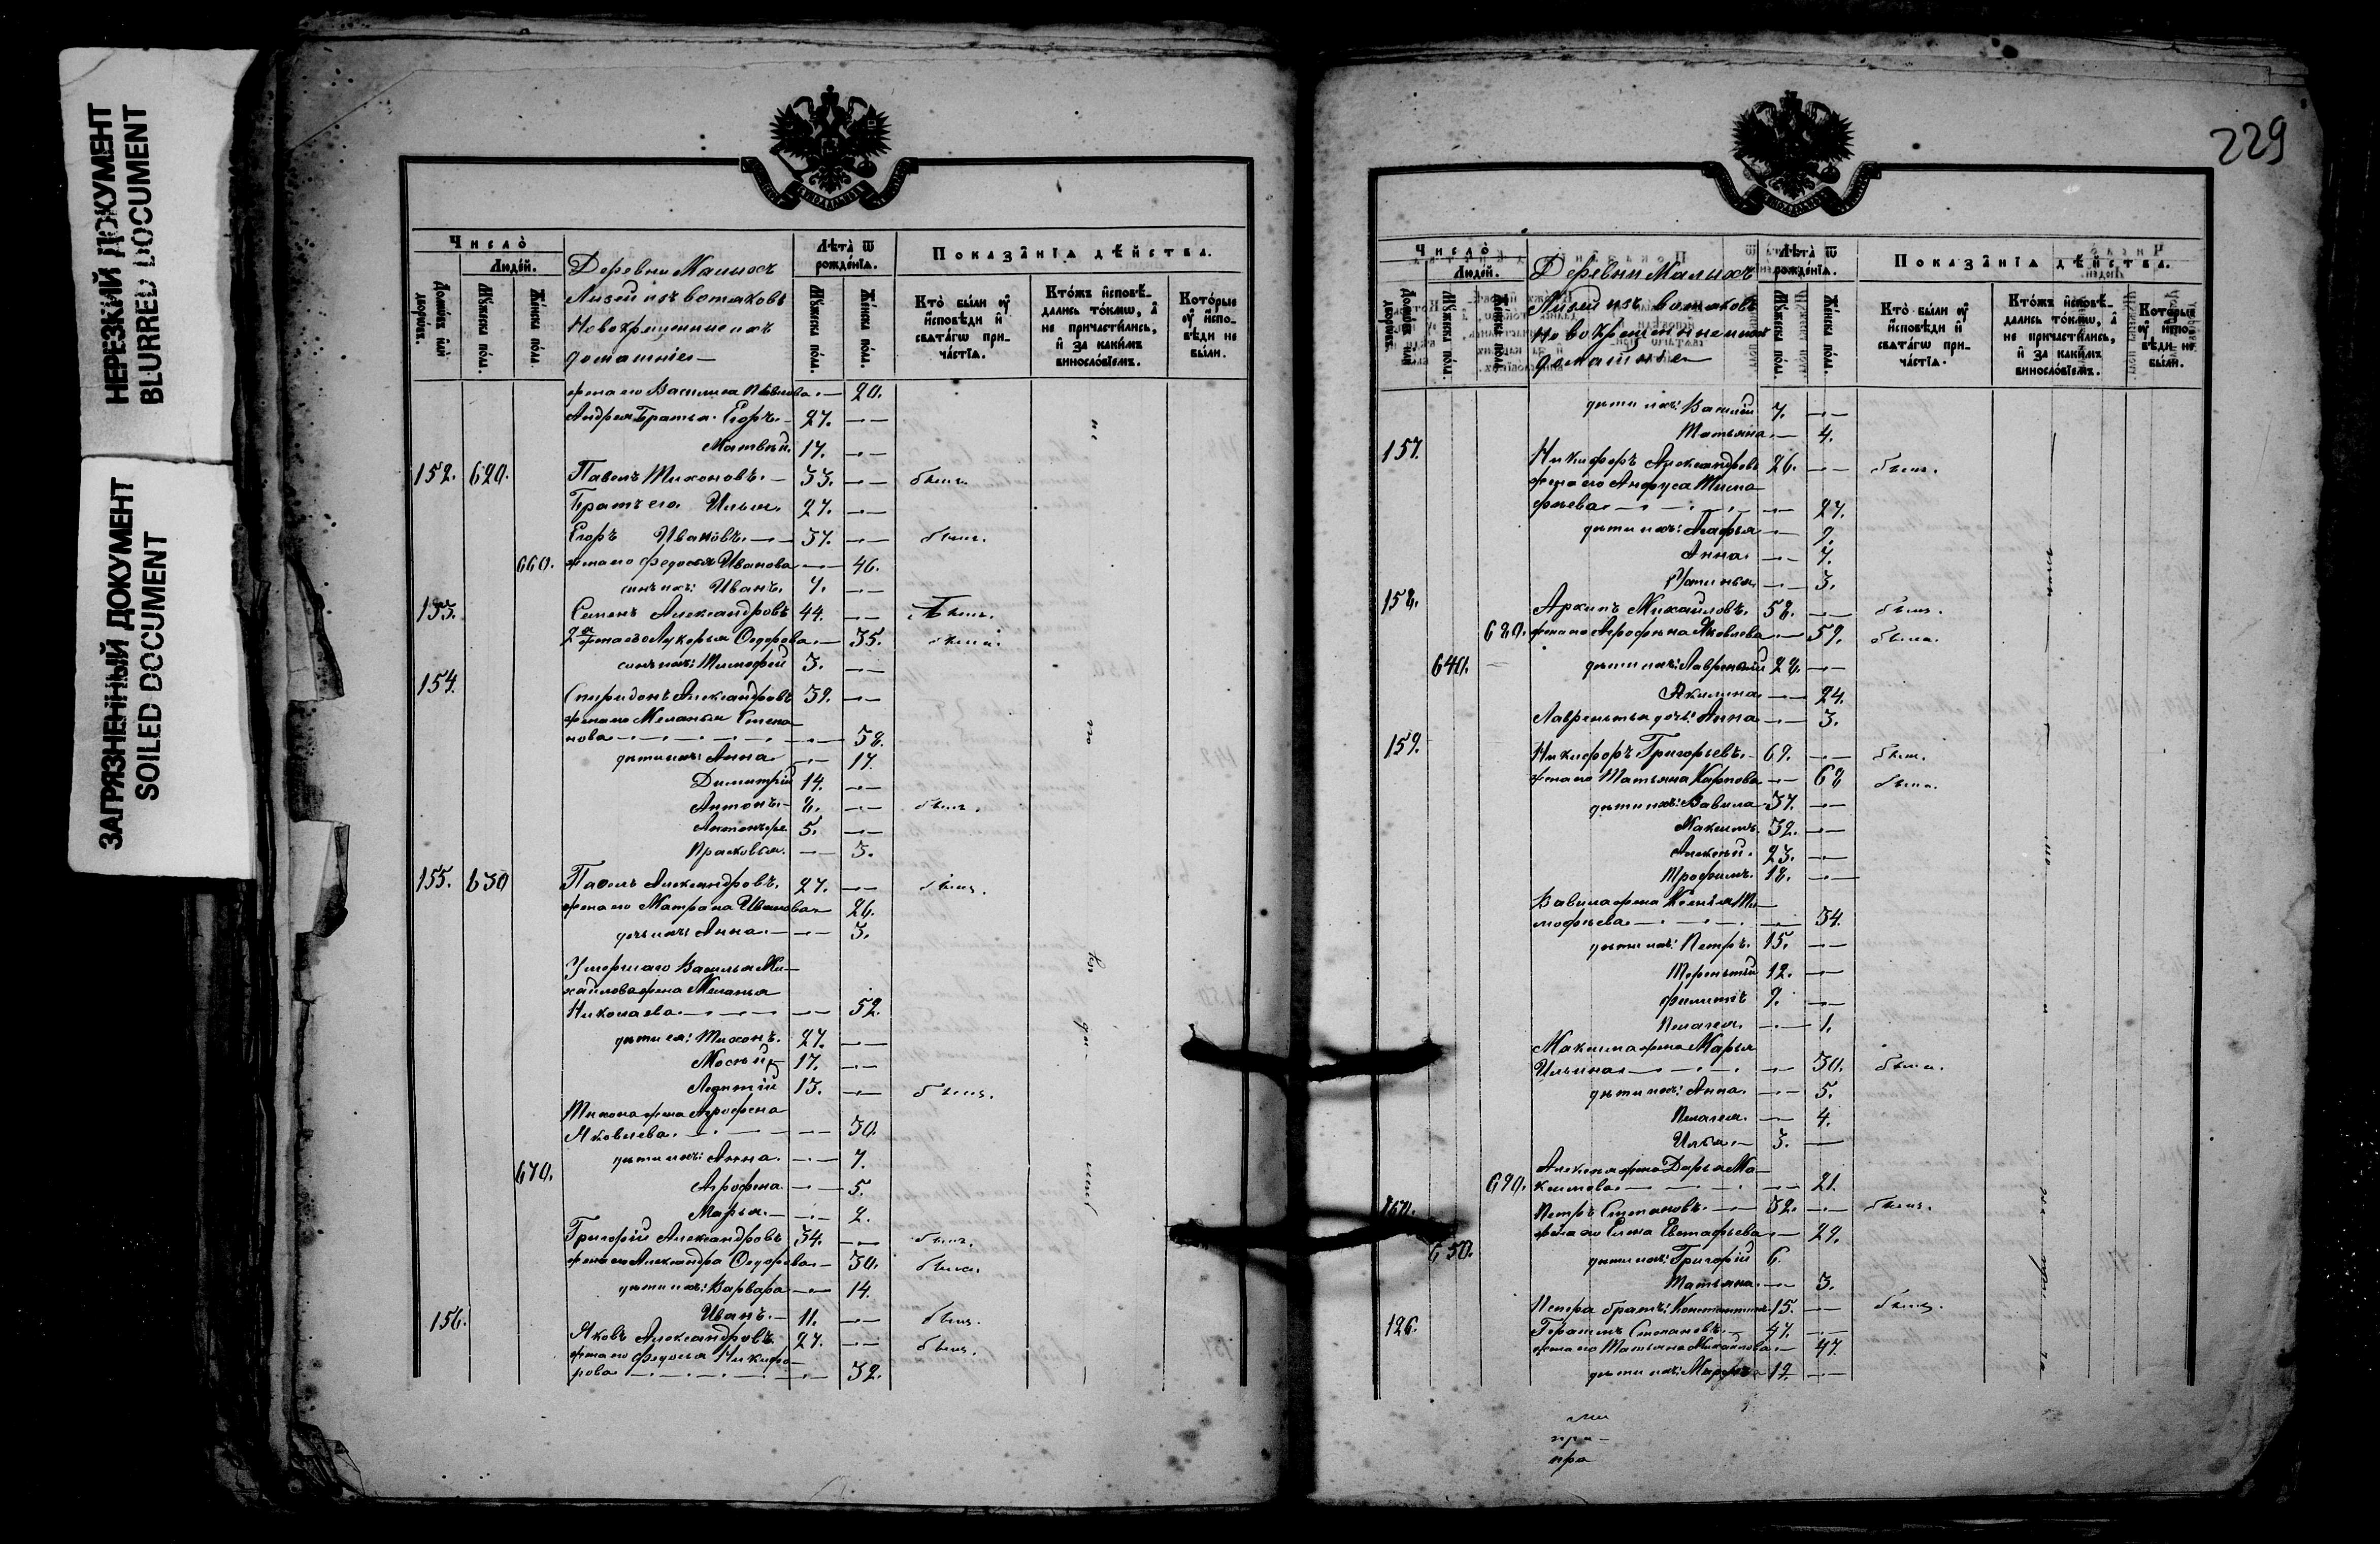 НЕРЕЗКИЙ ДОКУМЕНТ
BLURRED DOCUMENT
ЗАГРЯЗНЕННЫЙ ДОКУМЕНТ
SOILED DOCUMENT
Число̀
Людей.
Домѡвъ или дворѡвъ.
Мꙋжеска полꙋ.
Женска полꙋ.
Деревни Малыхъ
Лызей изъ вотяковъ
Новокрещенныхъ
домашніе
Лѣта ѿ рожденїѧ.
Мꙋжеска полꙋ.
Женска полꙋ.
Показанїѧ дѣйства.
Кто были оу
исповѣди и
свѧтагѡ при-
частїѧ.
Ктожъ исповѣ-
дались токмѡ, а
не причастились,
и за какимъ
винословїемъ.
Которые
оу испо-
вѣди не
были.
жена его Василиса Павлова — 20.
Андрея Братья: Егоръ. 27. —
Матвѣй. 17. —
152. 620. Павелъ Тихоновъ. 33. — былъ.
Братъ его Илья. 27. —
Егоръ Ивановъ. 57. — былъ.
660. жена его Федосья Иванова — 46.
сынъ ихъ: Иванъ. 7. —
153. Семенъ Александровъ 44. — былъ.
2я жена его Лукерья Ѳедорова — 35. была.
сынъ ихъ: Тимофей 3. —
154. Спиридонъ Александровъ 39. —
жена его Меланья Степа-
нова — 38.
дѣти ихъ: Анна — 17.
Димитрій 14. —
Антонъ. 8. — былъ.
5. —
Прасковья. — 3.
155. 630 Павелъ Александровъ. 27. — былъ.
жена его Матрона Иванова 26.
дочь ихъ: Анна. — 3.
Умершаго Василья Ми-
хайлова жена Меланья
Николаева — 52.
дѣти ея: Тихонъ. 27. —
Мосѣй 17. —
13. — былъ.
Тихона жена Агрофена
Яковлева. — 30.
670. дѣти ихъ: Анна. — 7.
Агрофена — 5.
Марья. — 2.
Григорій Александровъ 34. — былъ.
жена его Александра Ѳедорова — 30. была.
дѣти ихъ: Варвара — 14.
Иванъ. 11. — былъ.
156. Яковъ Александровъ 27. — былъ.
жена его Федосья Никифо-
рова — 32.
229
Число̀
Людей.
Домѡвъ или дворѡвъ.
Мꙋжеска полꙋ.
Женска полꙋ.
Деревни Малыхъ
Лызей изъ вотяковъ
новокрещенныхъ
домашніе
Лѣта ѿ рожденїѧ.
Мꙋжеска полꙋ.
Женска полꙋ.
Показанїѧ дѣйства.
Кто были оу
исповѣди и
свѧтагѡ при-
частїѧ.
Ктожъ исповѣ-
дались токмѡ, а
не причастились,
и за какимъ
винословїемъ.
Которые
оу испо-
вѣди не
были.
дѣти ихъ: Василій 7. —
Татьяна. — 4.
157. Никифоръ Александровъ 26. — былъ.
жена его Анфуса Тимо-
фѣева — 27.
дѣти ихъ: Агафья — 9.
Анна. — 7.
Устинья — 3.
158. Архипъ Михайловъ. 58. — былъ.
680. жена его Агрофена Яковлева — 59. была.
640. дѣти ихъ: Лаврентій 28. —
Акилина — 24.
Лаврентья дочь: Анна — 3.
159. Никифоръ Григорьевъ. 69. — былъ.
жена его Татьяна Карпова — 68 была.
дѣти ихъ: Вавила 37. —
Максимъ. 32. —
Алексѣй. 23. —
Трофимъ. 18. —
Вавила жена Ксенья Ти-
мофѣева — 34.
дѣти ихъ: Петръ. 15. —
Терентій 12. —
Филиппъ 9. —
Пелагея. — 1.
Максима жена Марья
Ильина — 30. была.
дѣти ихъ: Анна. — 5.
Пелагея. — 4.
Илья 3. —
Алексѣя жена Дарья Ма-
690. ксимова — 21.
160. Петръ Степановъ. 32. — былъ.
жена его Елена Евстафьева — 29.
650. дѣти ихъ: Григорій 6.
Татьяна. — 3.
Петра братъ: Константинъ. 15. — былъ.
126. Герасимъ Степановъ. 47. —
жена его Татьяна Михайлова — 47.
дѣти ихъ: 12. —
ли
при-
пра